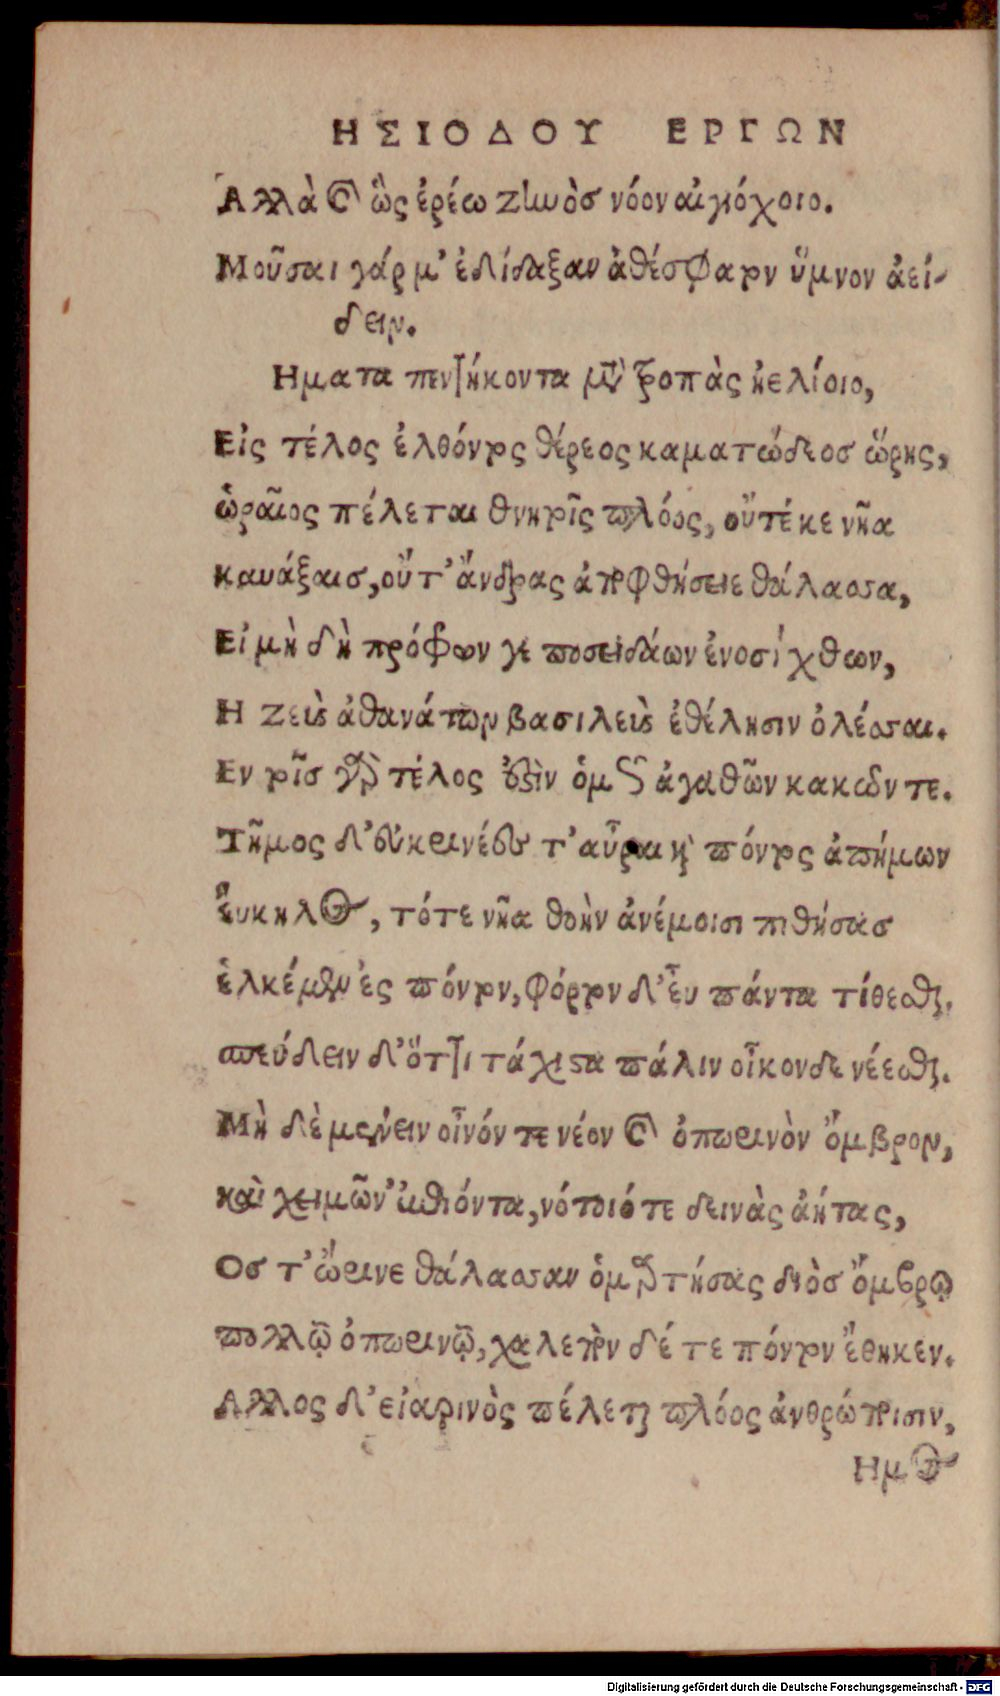 ΗΣΙΟΔΟΥ ΕΡΓΩΝ
Αλλὰ καὶ ὣς ἐρέω ζηνὸσ νόον αἰγιόχοιο.
Μοῦσαι γάρ μ’ ἐδίδαξαν ἀθέσφατον ὕμνον ἀεί-
δειν.
Ηματα πεντήκοντα μετὰ τροπὰς ἠελίοιο,
Εἰς τέλος ἐλθόντος θέρεος καματώδεοσ ὥρης,
ὡραῖος πέλεται θνητοῖς πλόος, οὔτέ κε νῆα
καυάξαισ, οὔτ’ ἄνδρας ἀποφθήσειε θάλασσα,
Εἰ μὴ δὴ πρόφρων γε ποσειδάων ἐνοσίχθων,
Η ζεὺς ἀθανάτων βασιλεὺς ἐθέλησιν ὀλέσσαι.
Εν τοῖσ γὰρ τέλος ἐστὶν ὁμῶς ἀγαθῶν κακῶν τε.
Τῆμος δ’ εὐκρινέες τ’ αὖραι καὶ πόντος ἀπήμων
εὔκηλος, τότε νῆα θοὴν ἀνέμοισι πιθήσας
ἑλκέμεν ἐς πόντον, φόρτον δ’ εὖ πάντα τίθεσθαι.
σπεύδειν δ’ ὅττι τάχιστα πάλιν οἶκονδε νέεσθαι.
Μὴ δὲ μένειν οἶνόν τε νέον καὶ ὀπωρινὸν ὄμβρον,
καὶ χειμῶν’ ἐπιόντα, νότοιό τε δεινὰς ἀήτας,
Οσ τ’ ὤρινε θάλασσαν ὁμαρτήσας διὸσ ὄμβρῳ
πολλῷ ὀπωρινῷ, χαλεπὸν δέ τε πόντον ἔθηκεν.
Αλλος δ’ εἰαρινὸς πέλεται πλόος ἀνθρώποισιν,
Ημος
Digitalisierung gefördert durch die Deutsche Forschungsgemeinschaft - DFG